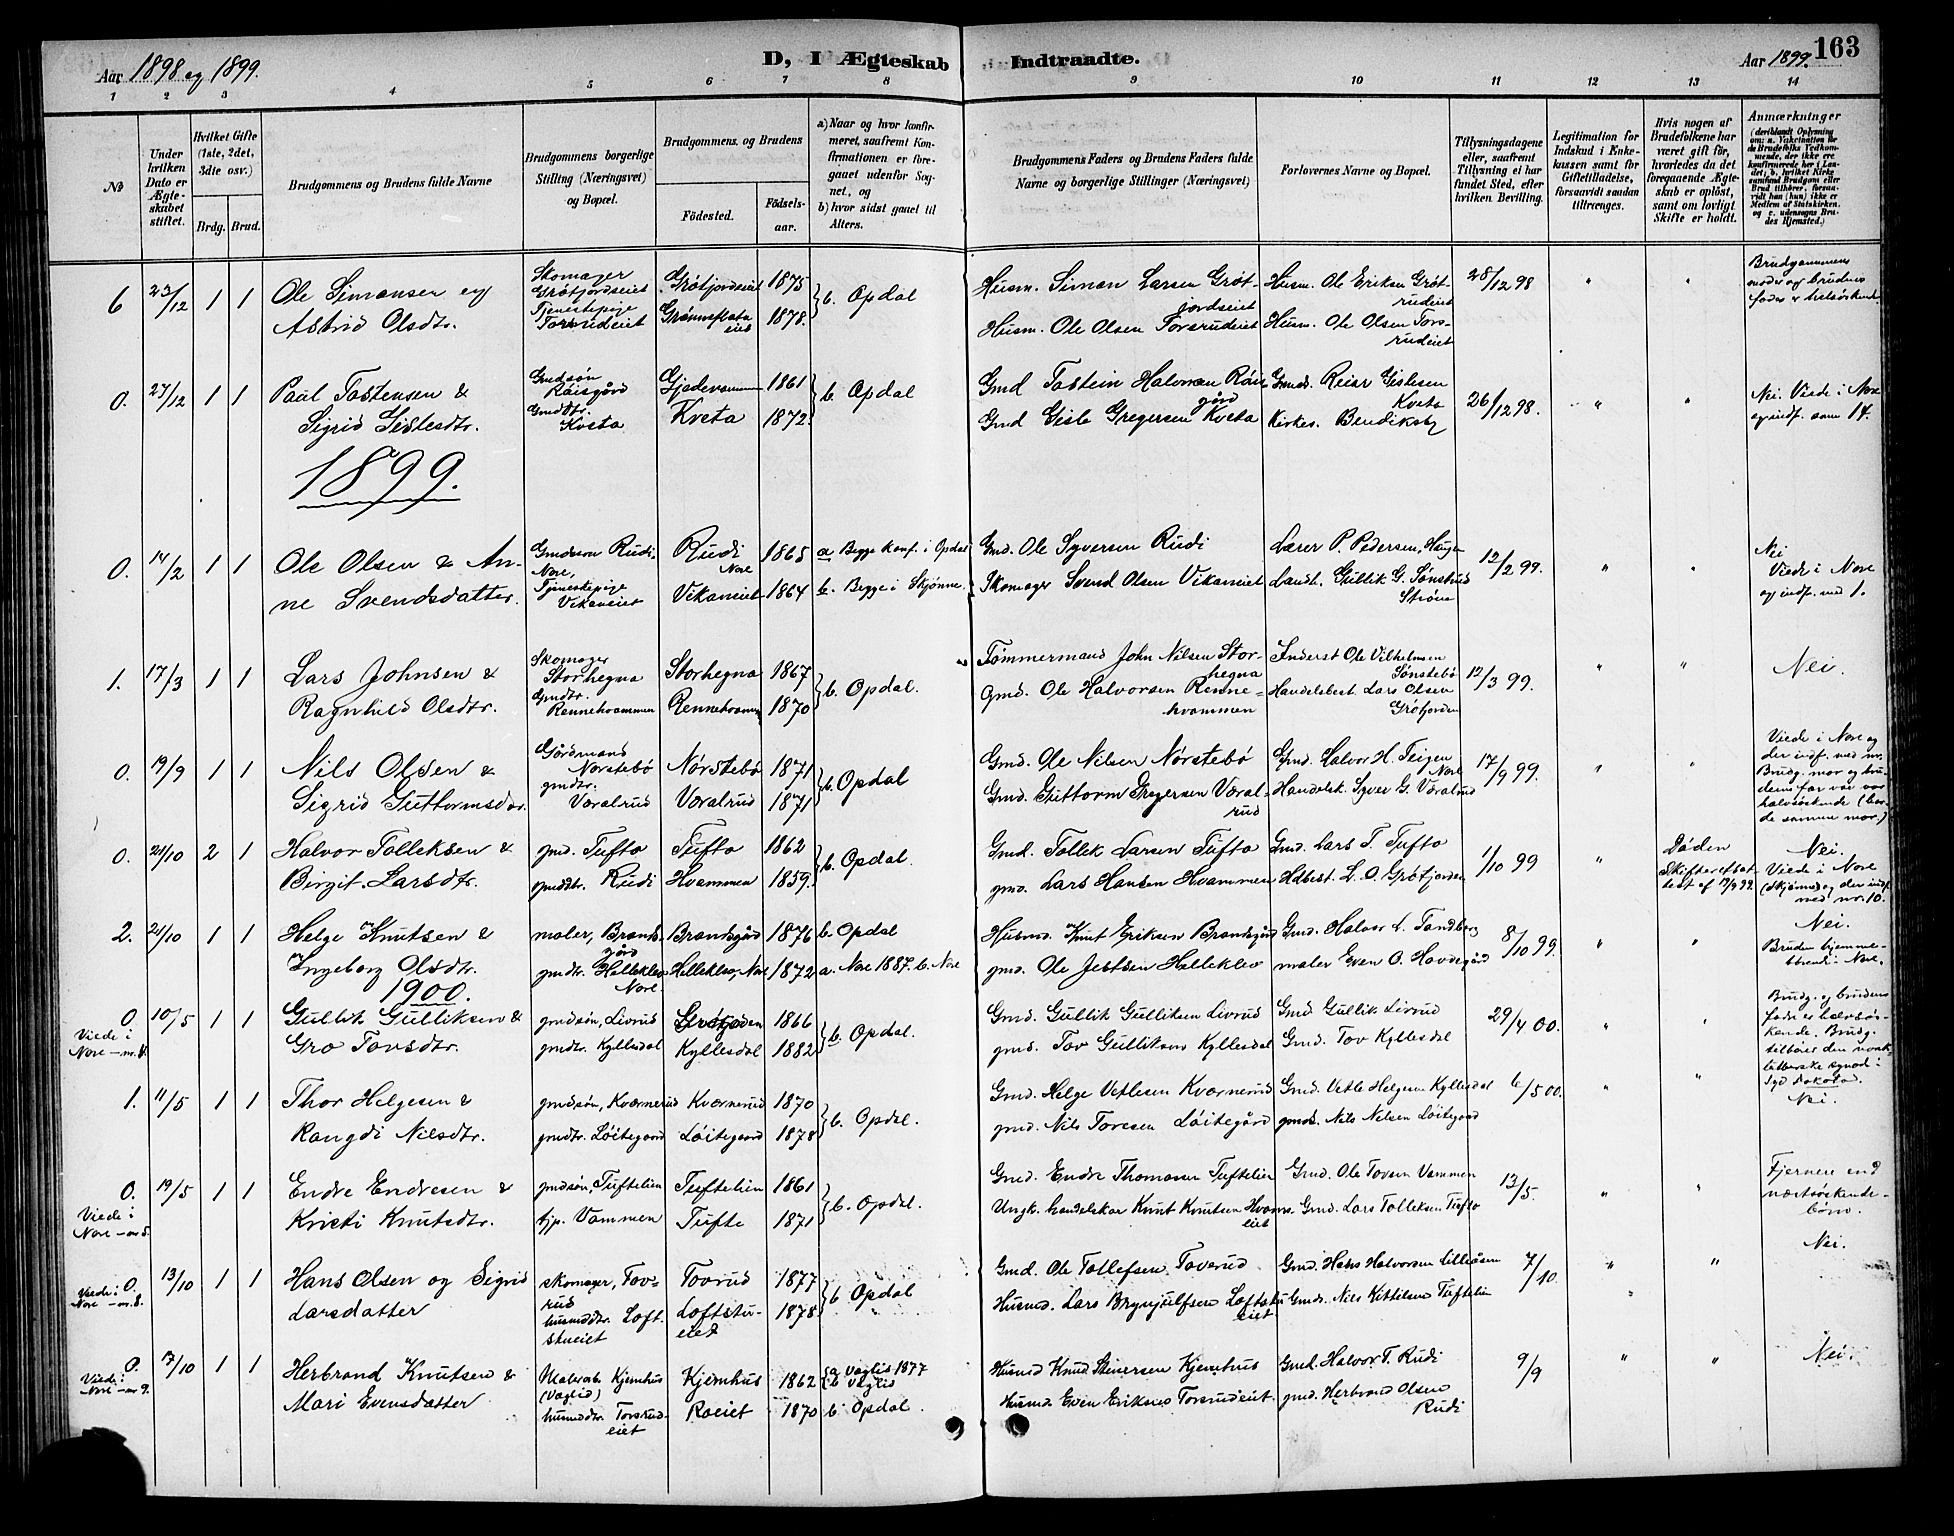 Aar 1898 og 1899.
D, I Ægteskab
Indtraadte.
Aar 1899.
163
1 2 3 4 5 6 7 8 9 10 11 12 13 14
No
Under hvilken Dato er Ægteskabet stiftet.
Hvilket Gifte (1ste, 2det, 3die osv.)
Brdg. Brud.
Brudgommens og Brudens fulde Navne
Brudgommens borgerlige Stilling (Næringsvei) og Bopæl.
Brudgommens og Brudens
Fødested.
Fødselsaar.
a) Naar og hvor konfirmeret, saafremt Konfirmationen er foregaaet udenfor Sognet, og
b) hvor sidst gaaet til Alters.
Brudgommens Faders og Brudens Faders fulde Navne og borgerlige Stillinger (Næringsvei)
Forlovernes Navne og Bopæl.
Tillysningsdagene eller, saafremt Tillysning ei har fundet Sted, efter hvilken Bevilling.
Legitimation for Indskud i Enkekassen samt for Giftetilladelse, forsaavidt saadan tiltrænges.
Hvis nogen af Brudefolkene har været gift før, hvorledes da det foregaaende Ægteskab er opløst, samt om lovligt Skifte er holdt.
Anmærkninger
6 23/12 1 1 Ole Simonsen og Skomager Grøtfjordseiet Grøtfjordseiet 1875 b. Opdal Husm. Simon Larsen Grøtjordseiet Husm. Ole Eriksen Grøtrudeiet 28/12 98 " " Brudgommens moder og brudens fader er helsøskend
Astrid Olsdtr. Tjenestepige Torsrudeiet Grønneflataeiet 1878. Husm. Ole Olsen Torsrudeiet Husm. Ole Olsen Torsrudeiet
0. 27/12 1 1 Paul Tostensen & Gmdsøn Råisgård Gjedevammen 1861 b. Opdal Gmd Tostein Halvorsen Råisgård Gmd. Reiar Gislesen Kveta 26/12 98. " " Nei. Viede i Nore
Sigrid Gislesdtr. Gmddtr. Kveta Kveta 1872. Gmd Gisle Gregersen Kveta Kirkes. Bendiksby og indf. som 14.
1899.
0. 14/2 1 1 Ole Olsen & An- Gmdsøn Rudi Nore, Rudi Nore 1865 a Begge konf. i Opdal Gmd. Ole Syversen Rudi Lærer P. Pedersen, Hauge 12/2 99. " " Nei Viede i Nore
ne Svendsdatter. Tjenestepige Vikaneiet Vikaneiet 1864 b. Begge i Skjønne. Skomager Svend Olsen Vikaneiet Landh. Gullik G. Sønstrud Strøm og indf. med 1.
1. 17/3 1 1 Lars Johnsen & Skomager Storhegna Storhegna 1867 b. Opdal. Tømmermand John Nilsen Storhegna Inderst Ole Vilhelmsen Sønstebø 12/3 99. " " Nei.
Ragnhild Olsdtr. Gmdtr. Rennehvammen Rennehvammen 1870 Gmd. Ole Halvorsen Rennehvammen Handelsbest. Lars Olsen Grøfjorden
0. 19/9 1 1 Nils Olsen & Gårdmand Nørstebø Nørstebø 1871 b. Opdal Gmd. Ole Nilsen Nørstebø Gmd. Halvor H. Teigen Nore 17/9 99. " " Viede i Nore og der indf. ved nr.
Sigrid Guttormsdtr. gmdtr. Væralrud Væralrud 1871 Gmd. Guttorm Gregersen Væralrud Handelsk. Syver G. Væralrud Brudg. mor og brudens far var var halvsøskende (havde samme mor.)
0. 21/10 2 1 Halvor Tolleksen & gmd. Tufto Tufto 1862 b. Opdal. Gmd. Tollik Larsen Tufto Gmd. Lars T. Tufto 1/10 99 " Døden Nei. Viede i Nore
Birgit Larsdtr. gmddtr. Rudi Hvammen 1859. gmd. Lars Hansen Hvammen Hdbest. L. O. Grøfjorden Skifterettsattest af 17/9 99 (Skjønne) og der indf. med nr. 10.
2. 21/10 1 1 Helge Knutsen & maler, Brandsgård Brandsgård 1876 b. Opdal Husmd. Knut Eriksen Brandsgård Gmd. Halvor L. Tandberg 8/10 99. " " Nei.
Ingeborg Olsdtr. gmdtr. Helleklev, Nore Helleklev, Nore 1872 a. Nore 1887. b. Nore gmd. Ole Jestsen Helleklev maler Even O. Hovdegård Bruden hjemmehørende i Nore.
1900.
0. Viede i Nore - nr. 4. 10/5 1 1 Gullik Gulliksen & gmdsøn, Livrud Grøfjorden 1866 b. Opdal. Gmd. Gullik Gulliksen Livrud Gmd. Gullik Livrud 29/4 00. " " Brudg. og brudens fader er halvsøskende. Brudg.
Gro Tovsdtr. gmdtr. Kyllesdal Kyllesdal 1882 gmd. Tov Gulliksen Kyllesdal Gmd. Tov Kyllesdal tilhører den norsk-lutherske synod i Syd Dakota.
1. 11/5 1 1 Thor Helgesen & gmdsøn, Kværnerud Kværnerud 1870 b. Opdal. Gmd. Helge Vetlesen Kværnerud Gmd. Vetle Helgesen Kyllesdal 6/5 00. " " Nei.
Rangdi Nilsdtr. gmdtr. Løitegaard Løitegaard 1878 gmd. Nils Toresen Løitegård gmd. Nils Nilsen Løitegaard
0. Viede i Nore - nr 5. 19/5 1 1 Endre Endresen & gmdsøn, Tuftelien Tuftelien 1861 b. Opdal. Gmd. Endre Thomasen Tuftelien Gmd. Ole Tovsen Vammen 13/5. " " Fjernere end
Kristi Knutsdtr. tjp. Vammen Tufte 1871 Ungk. handelskar Knut Knutsen Hvammeiet Gmd. Lars Tolleksen Tufto næstsøskendebørn.
0. Viede i Nore - nr. 8. 13/10 1 1 Hans Olsen og Sigrid skomager, Tovrud Tovrud 1877 b Opdal Gmd. Ole Tollefsen Toverud Gmd. Hans Halvorsen Lilleåsen 7/10. " " Nei.
Larsdatter husmddtr. Loftstueiet Loftstueiet 1878 Husmd. Lars Brynjulfsen Loftstueiet Gmd. Nils Kittilsen Tuftelin "
0. Viede i Nore - nr 9. 17/10 1 1 Herbrand Knutsen & Malerab. Kjemhus (Vaglid) Kjemhus 1862 a Vaglid 1877 b Vaglid Husmd Knud Steinersen Kjemhus Gmd. Halvor T. Rudi 9/9 " " Nei.
Mari Evensdatter husmddtr. Torsrudeiet Roeiet 1870 b Opdal Husmd. Even Eriksen Torsrudeiet gmd. Herbrand Olsen Rudi